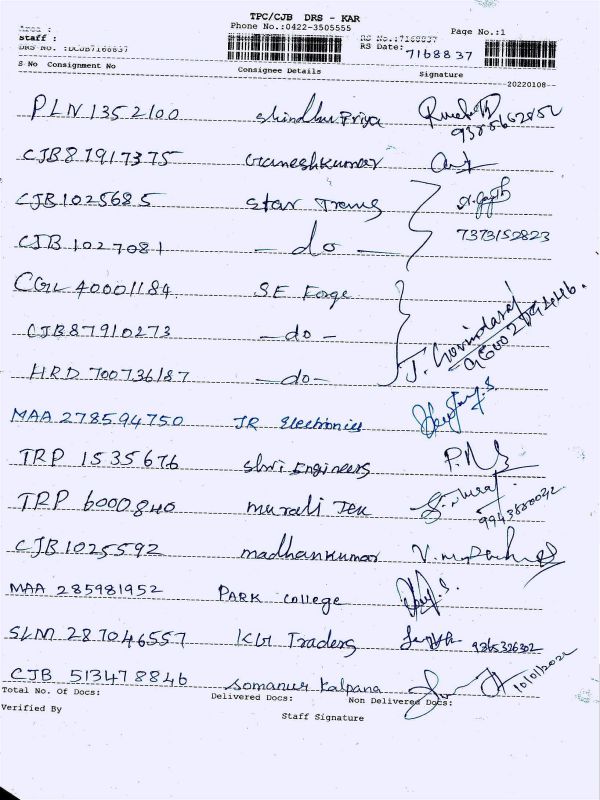 TPC/CJB DRS - KAR
Area :
Phone No.:0422-3505555
Page No.:1
Staff :
RS No.:7168837
DRS No. :DCJB7168837
RS Date: 7168837
S No Consignment No Consignee Details Signature
20220108
PLN 1352100 Shindhu Priya
CJB87917375 Ganeshkumar
CJB1025685 Star Trans
7373152823
CJB 1027081 - do -
CGL 40001184 S.E Forge
CJB87910273 - do -
J. Govindaraj
HRD 700736187 - do -
MAA 278594750 JR Electronics
TRP 1535676 Shri Engineers
TRP 6000840 Murali Tex
CJB1025592 madhankumar
MAA 285981952 PARK College
SLM 287046557 KG Traders 9265326302
CJB 513478846 Somanur Kalpana 10/01/2022
Total No. Of Docs: Delivered Docs: Non Delivered Docs:
Verified By Staff Signature